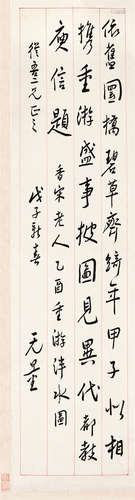 依舊圜橋碧草齊綺年甲子似相
携重游盛事披圖見異代都教
庾信題 香宋老人乙酉重游泮水圖
二兄正之 戊子新春 无量